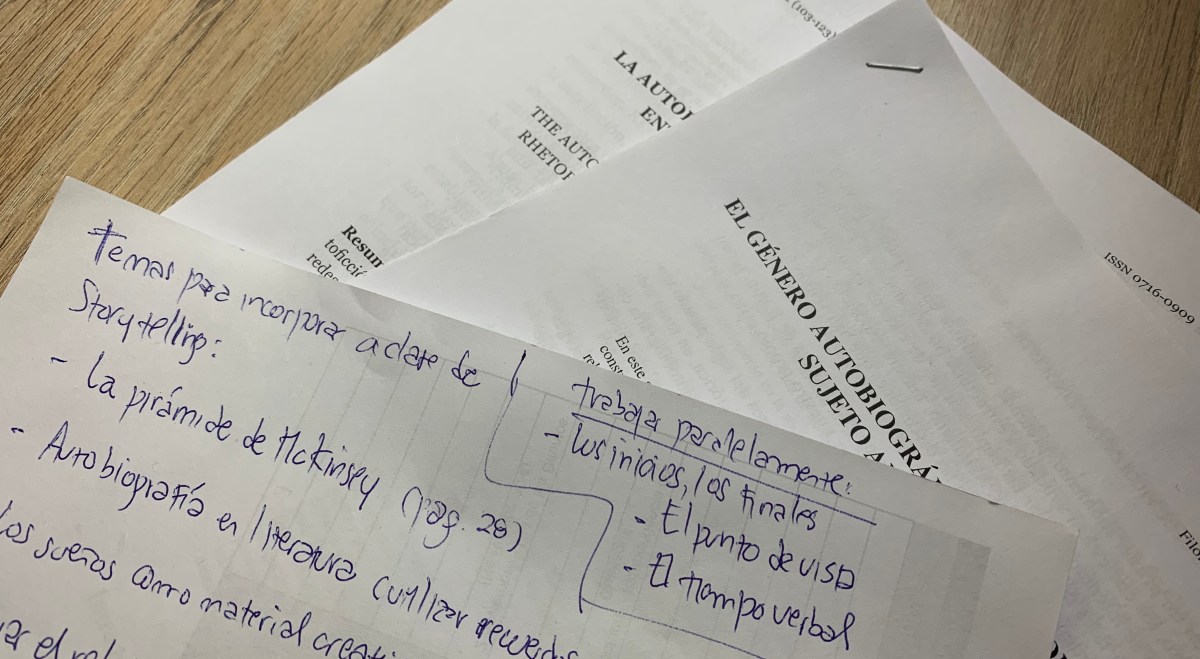 (103-123)
LA AUTO
EN
THE AUTO
RHETO
Resum
toficció
rede
EL GÉNERO AUTOBIOGRÁ
SUJETO A
ISSN 0716-0909
En este
const
re
Filo
Temas para incorporar a clase de
Storytelling:
- La pirámide de McKinsey (pág. 28)
- Autobiografía en literatura (utilizar recuerdos
los sueños como material creati
el rol
trabajar paralelamente:
- los inicios, los finales
- El punto de vista
- El tiempo verbal